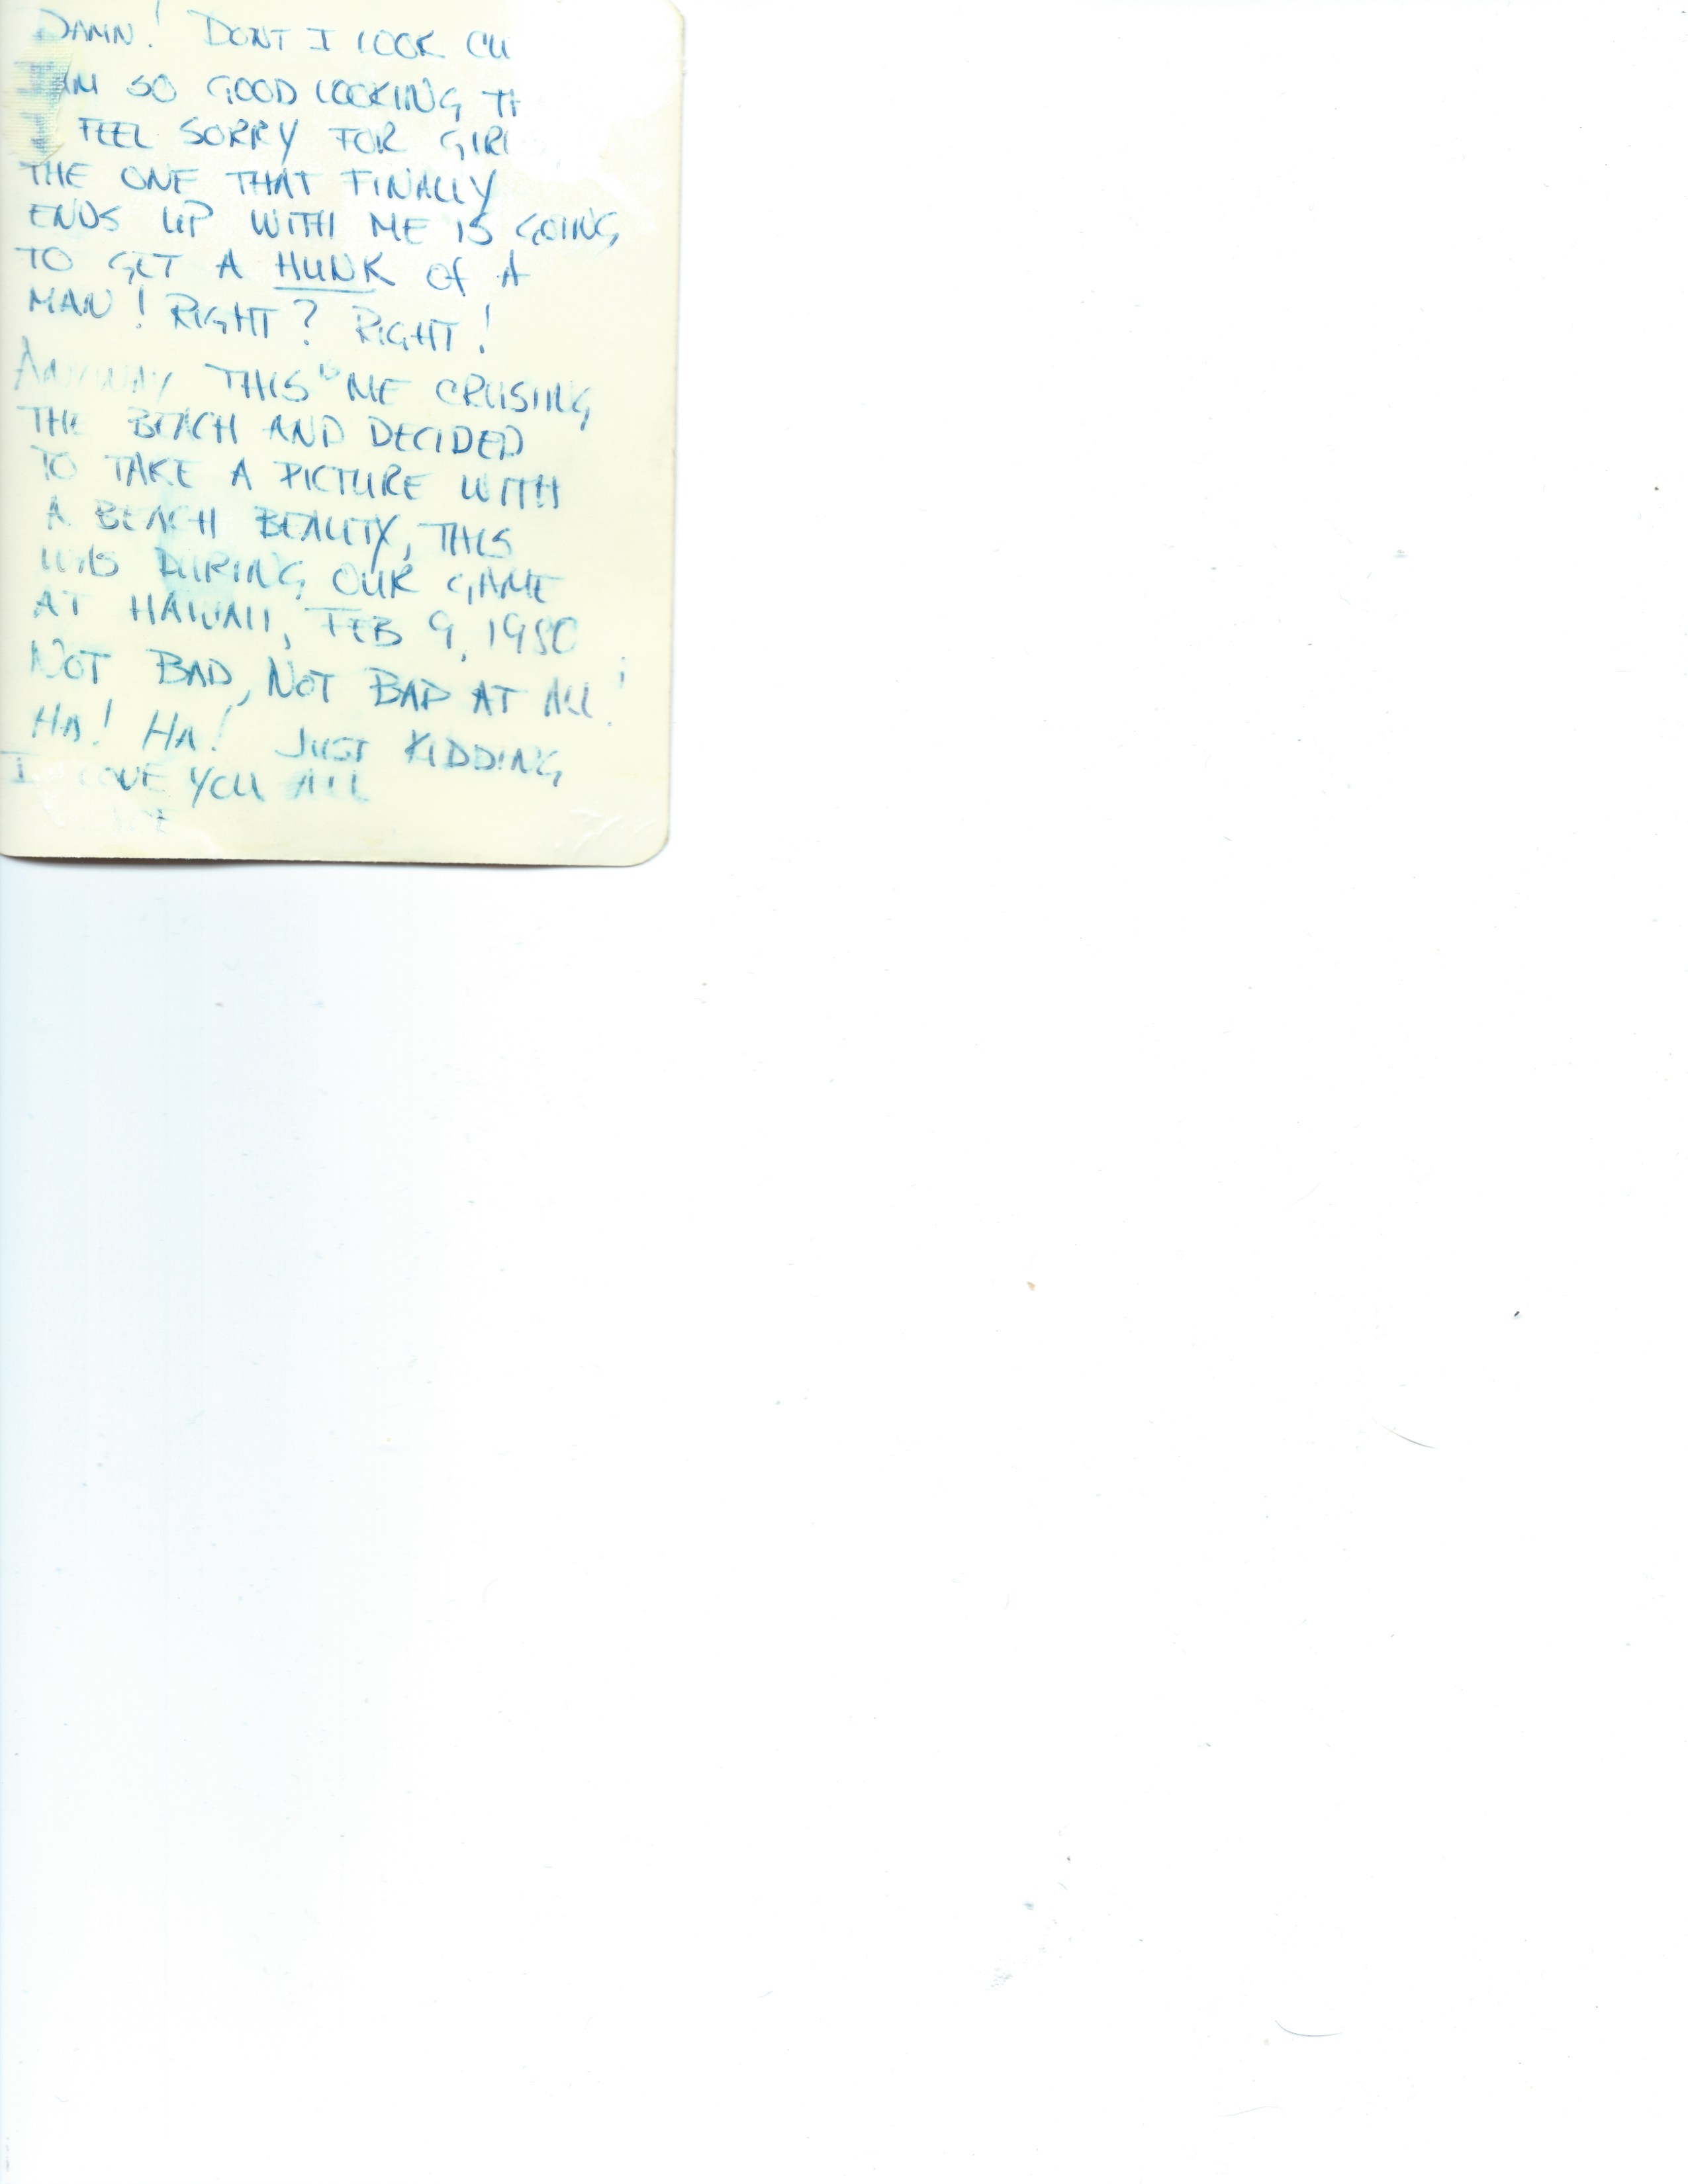 DAMN! DONT I LOOK CU
AM SO GOOD LOOKING TH
I FEEL SORRY FOR GIRL
THE ONE THAT FINALLY
ENDS UP WITH ME IS GOING
TO GET A HUNK of A
MAN! RIGHT? RIGHT!
ANYWAY THIS ME CRUSING
THE BEACH AND DECIDED
TO TAKE A PICTURE WITH
A BEACH BEAUTY, THIS
WAS DURING OUR GAME
AT HAWAII, FEB 9, 1980
NOT BAD, NOT BAD AT ALL!
HA! HA! JUST KIDDING
I LOVE YOU ALL